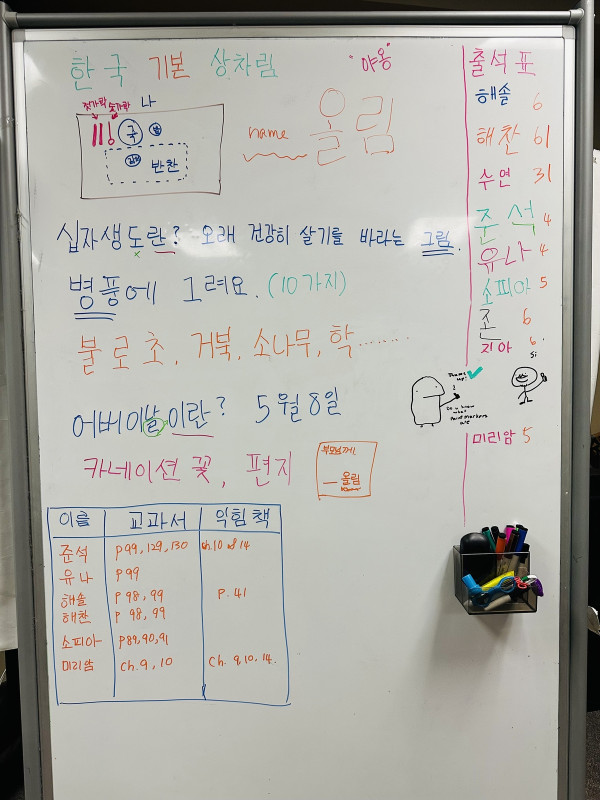 한국 기본 상차림
"야옹"
젓가락 숟가락 나
국 밥
김치 반찬
name 올림
십자생도란? 오래 건강히 살기를 바라는 그림.
병풍에 그려요. (10가지)
불로초, 거북, 소나무, 학........
어버이날이란? 5월 8일
카네이션 꽃, 편지
부모님께!
— 올림
name
이름 교과서 익힘책
준석 p99, 129, 130 ch.10 & 14
유나 p99
해솔 p 98, 99 p. 41
해찬 p 98, 99
소피아 p89, 90, 91
미리암 ch. 9, 10 Ch. 9, 10, 14.
출석표
해솔 6
해찬 61
수연 31
준석 4
유나 4
소피아 5
조 6
지아 6.
si
미리암 5